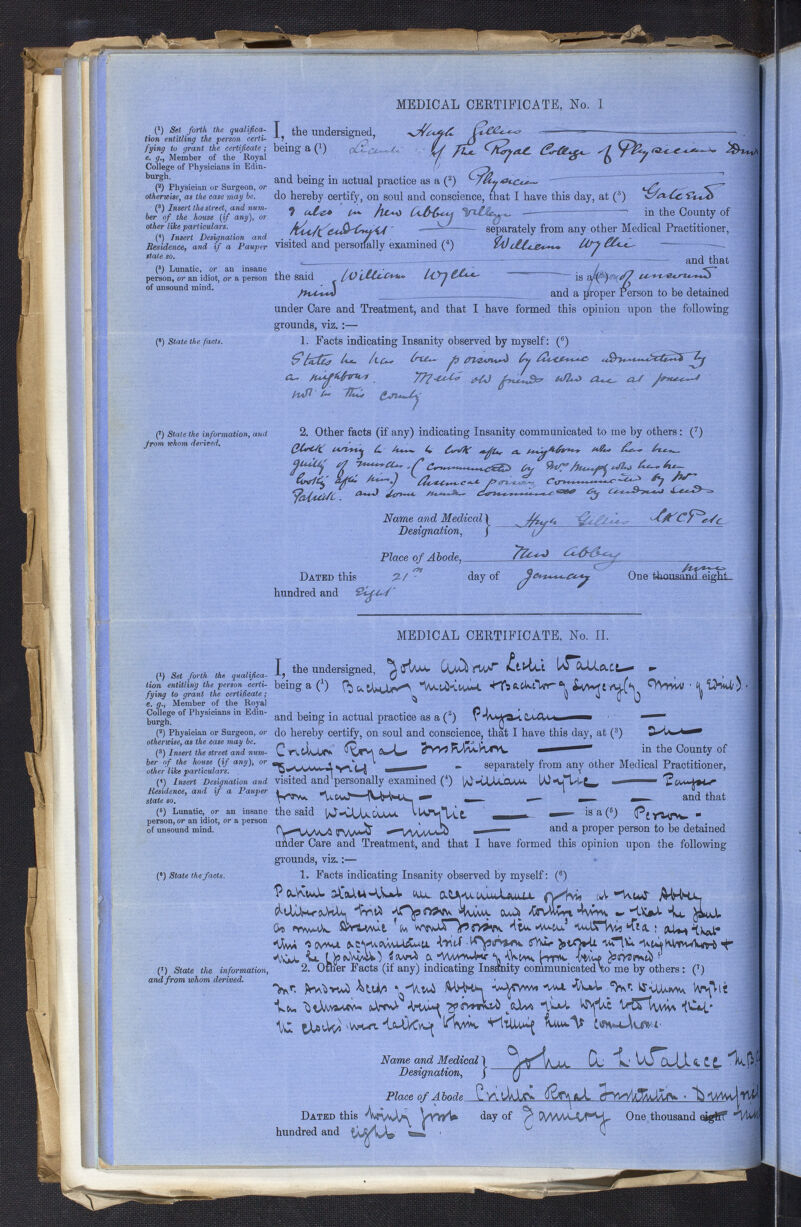 MEDICAL CERTIFICATE, No. I
(¹) Set forth the qualifica-
tion entitling the person certi-
fying to grant the certificate ;
e. g., Member of the Royal
College of Physicians in Edin-
burgh.
(²) Physician or Surgeon, or
otherwise, as the case may be.
(³) Insert the street, and num-
ber of the house (if any), or
other like particulars.
(⁴) Insert Designation and
Residence, and if a Pauper
state so.
(⁵) Lunatic, or an insane
person, or an idiot, or a person
of unsound mind.
I, the undersigned, Hugh Gillies
being a (¹) of The Royal College of Physicians Edin
and being in actual practice as a (²) Physician
do hereby certify, on soul and conscience, that I have this day, at (³) Gate End
& also in New Abbey village in the County of
Kirkcudbright separately from any other Medical Practitioner,
visited and personally examined (⁴) William Wyllie
and that
the said William Wyllie is a (⁵) of unsound
mind and a proper Person to be detained
under Care and Treatment, and that I have formed this opinion upon the following
grounds, viz. :—
(⁶) State the facts.
1. Facts indicating Insanity observed by myself: (⁶)
States he has been poisoned by Arsenic administered by
a neighbour. Meets old friends who are at present
not in this county
(⁷) State the information, and
from whom derived.
2. Other facts (if any) indicating Insanity communicated to me by others: (⁷)
Clock to him to look after a neighbour who has been
guilty of murder. (Communicated by Mrs Murphy who has been
looking after him.) Arsenical poison communicated by Mr
Patrick. and some communicated by Andrew Seeds
Name and Medical Designation, Hugh Gillies LRCP etc
Place of Abode, New Abbey
DATED this 21st day of January One thousand eight nine
hundred and Eight
MEDICAL CERTIFICATE, No. II.
(¹) Set forth the qualifica-
tion entitling the person certi-
fying to grant the certificate ;
e. g., Member of the Royal
College of Physicians in Edin-
burgh.
(²) Physician or Surgeon, or
otherwise, as the case may be.
(³) Insert the street and num-
ber of the house (if any), or
other like particulars.
(⁴) Insert Designation and
Residence, and if a Pauper
state so.
(⁵) Lunatic, or an insane
person, or an idiot, or a person
of unsound mind.
I, the undersigned, John Andrew Leslie Wallace
being a (¹) Bachelor of Medicine & Bachelor of Surgery (of Univ. of Edinb).
and being in actual practice as a (²) Physician
do hereby certify, on soul and conscience, that I have this day, at (³) The
Crichton Royal Institution in the County of
Dumfries separately from any other Medical Practitioner,
visited and personally examined (⁴) William Wyllie Pauper
from New Abbey and that
the said William Wyllie is a (⁵) Person
of unsound mind and a proper person to be detained
under Care and Treatment, and that I have formed this opinion upon the following
grounds, viz. :—
(⁶) State the facts.
1. Facts indicating Insanity observed by myself: (⁶)
Patient states that an acquaintance of his at New Abbey
deliberately tried to poison him and torture him – that he put
as much Arsenic "as would poison ten men" into his tea: also that
this same acquaintance tried to poison other people in the neighbourhood &
that he (patient) saved a number of them from being poisoned
(⁷) State the information,
and from whom derived.
2. Other Facts (if any) indicating Insanity communicated to me by others: (⁷)
Mr. Andrew Seeds of New Abbey informs me that Mr. William Wyllie
has Delusions about being poisoned, also that Wyllie told him that
the clocks were talking to him & telling him to come home.
Name and Medical Designation, John A. L. Wallace M.B.
Place of Abode Crichton Royal Institution. Dumfries
DATED this twenty first day of January One thousand eight nine
hundred and eight